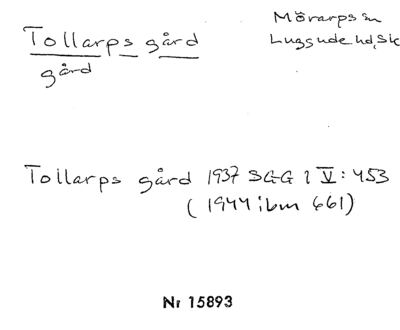 Tollarps gård
gård
Mörarps sn
Luggude hd, Sk
Tollarps gård 1937 SGG 1 V: 453
(1944 ibm 661)
Nr 15893